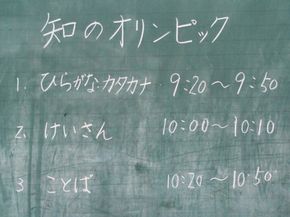 知のオリンピック
1. ひらがな・カタカナ 9:20～9:50
2. けいさん 10:00～10:10
3 ことば 10:20～10:50